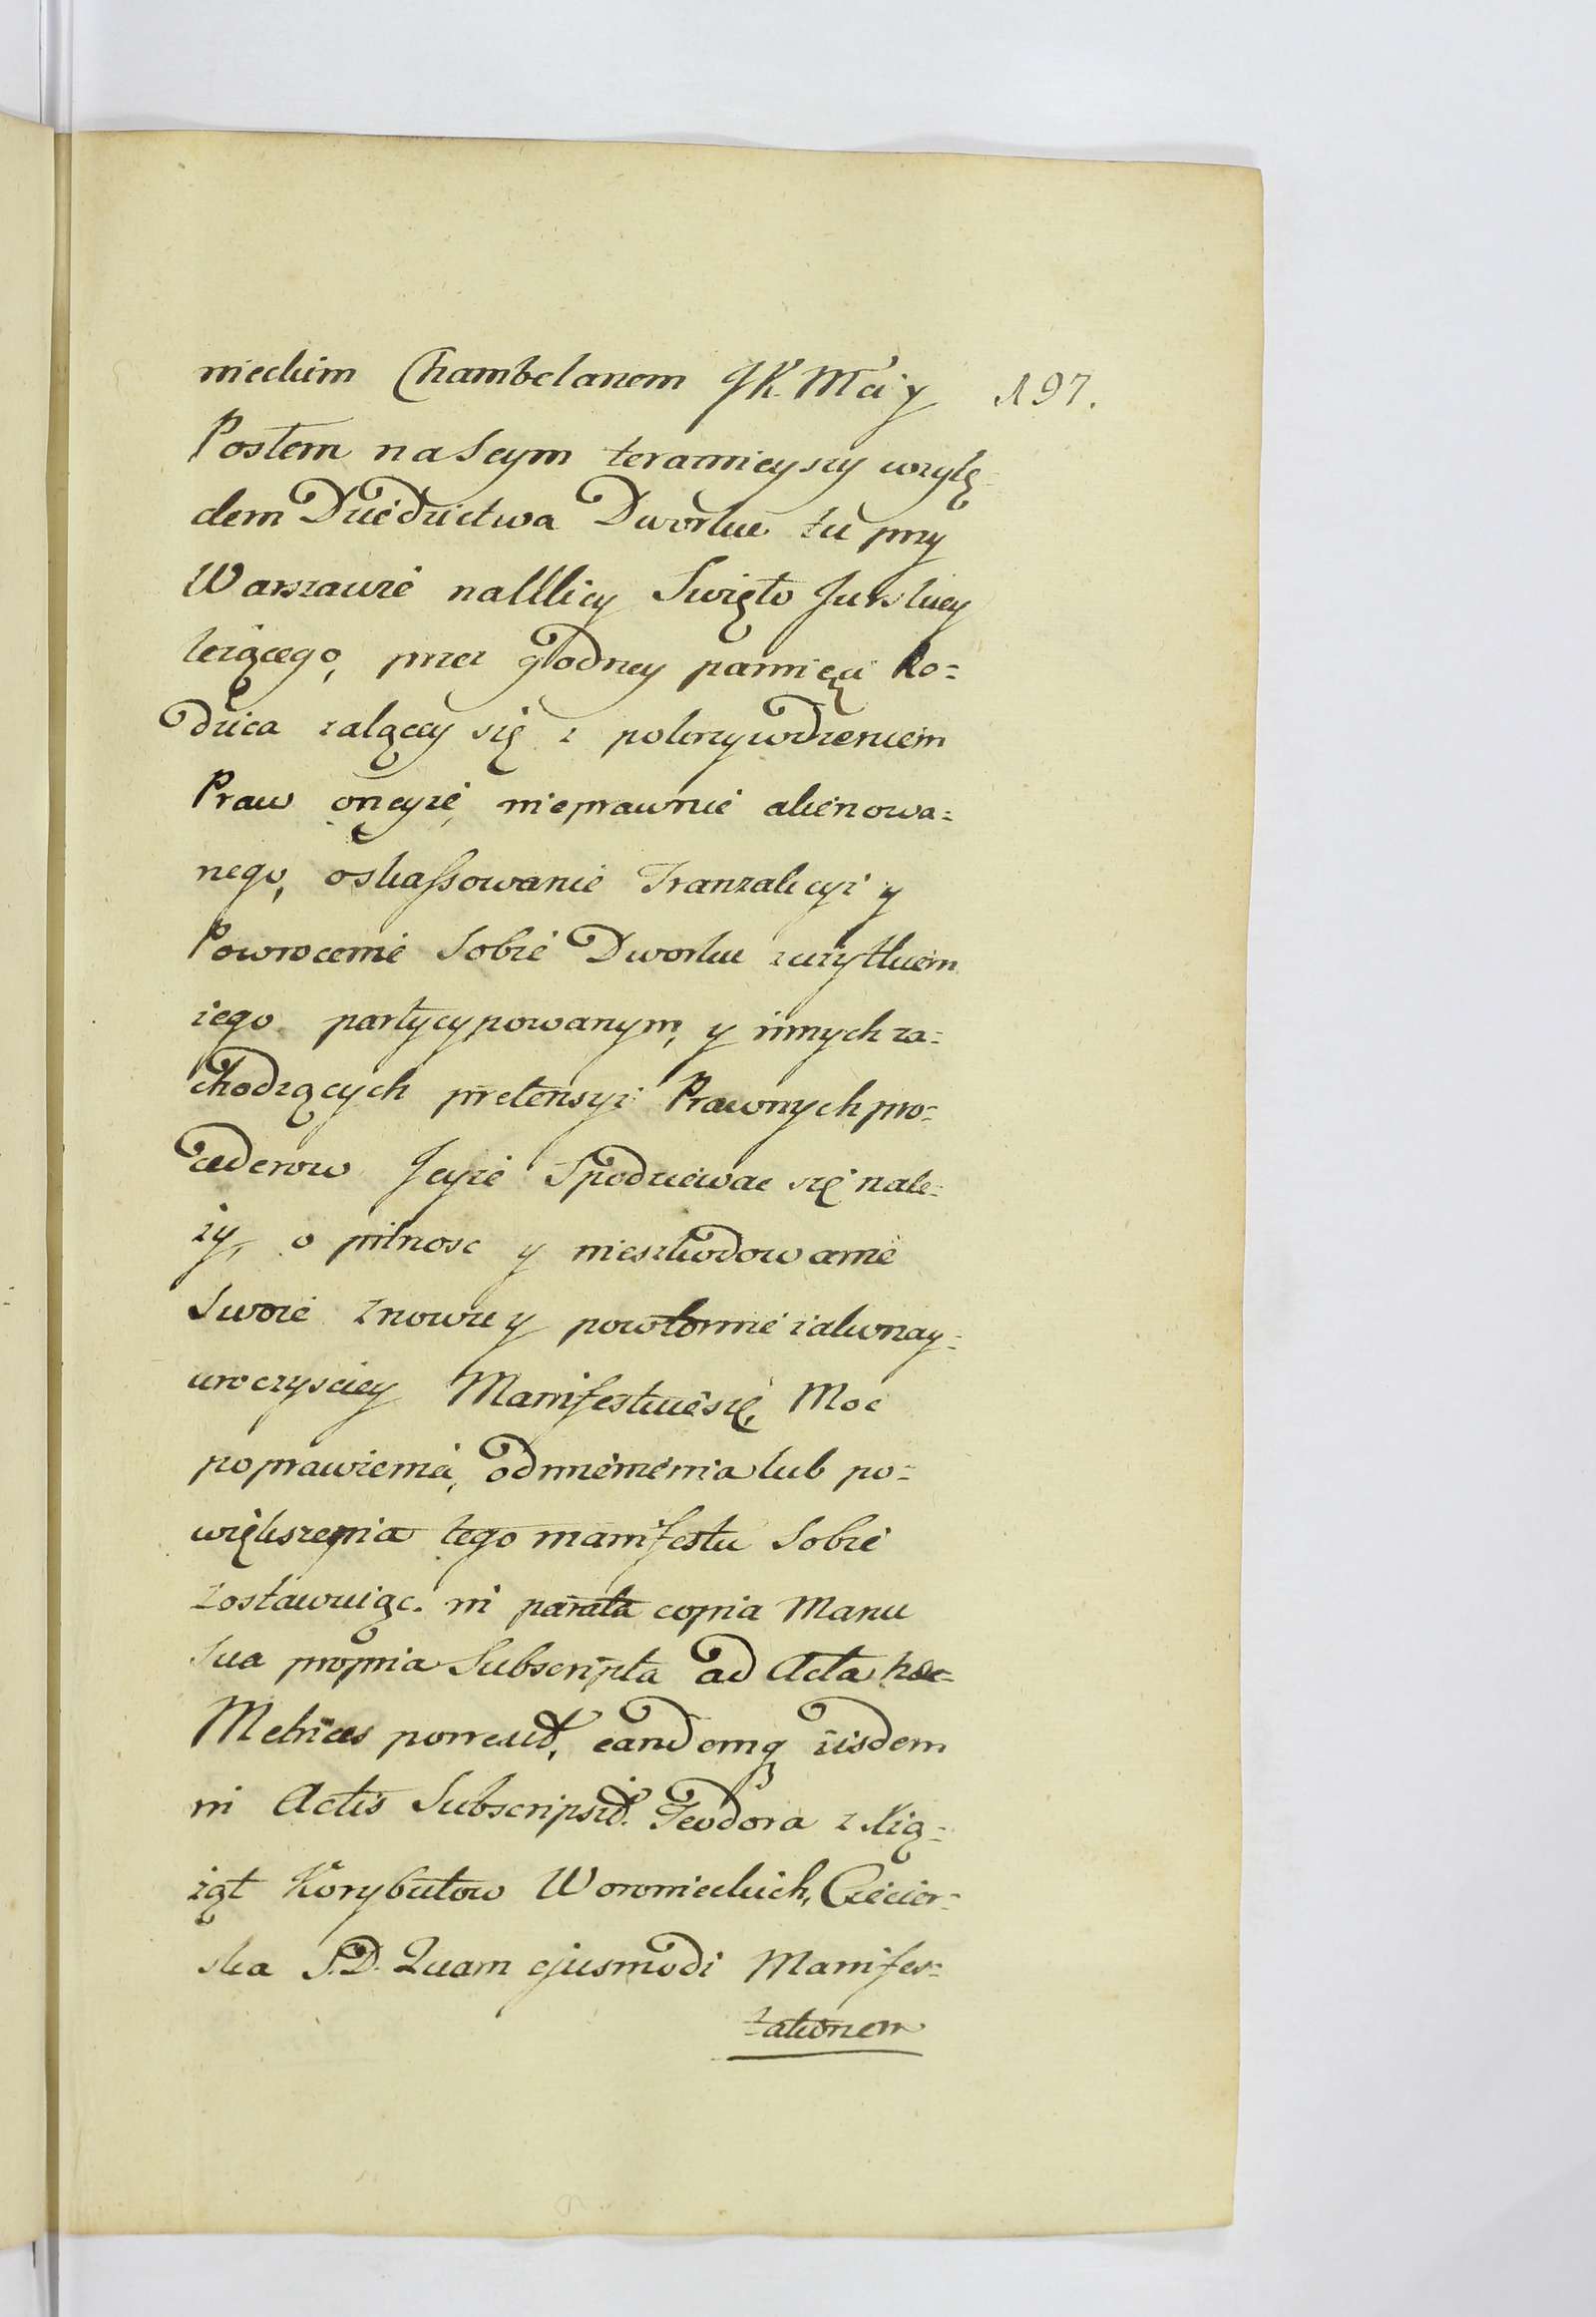 nieckim Chambelanem JK. Mci y
197.
Posłem na Seym teraznieyszy wzglę-
dem Dziedzictwa Dworku tu przy
Warszawie na Ulicy Swięto Jurskiey
leżącego, przez godney pamięci Ro=
dzica żalącey się z pokrzywdzeniem
Praw oneyże, nieprawnie alienowa=
nego, o skassowanie Tranzakcyi y
Powrocenie Sobie Dworku z użytkiem
iego partycypowanym, y innych za=
chodzących pretensyi Prawnych pro=
cederow Jeyże Spodziewac się nale=
ży, o pilnosc y nieszkodowanie
Swoie znowu y powtornie iako nay=
uroczysciey Manifestuie się, Moc
poprawienia, odmienienia lub po=
większenia tego manifestu Sobie
zostawuiąc. in parata copia Manu
Sua propria Subscripta ad Acta hæc
Metrices porrexit, eandemq iisdem
in Actis Subscripsit. Teodora z Xią=
żąt Korybutow Woronieckich, Ciecier=
ska S.D. Quam ejusmodi Manifes=
tationem